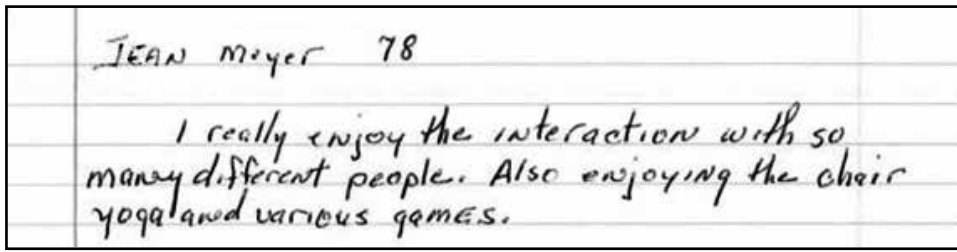 JEAN Meyer 78
I really enjoy the interaction with so
many different people. Also enjoying the chair
yoga and various games.